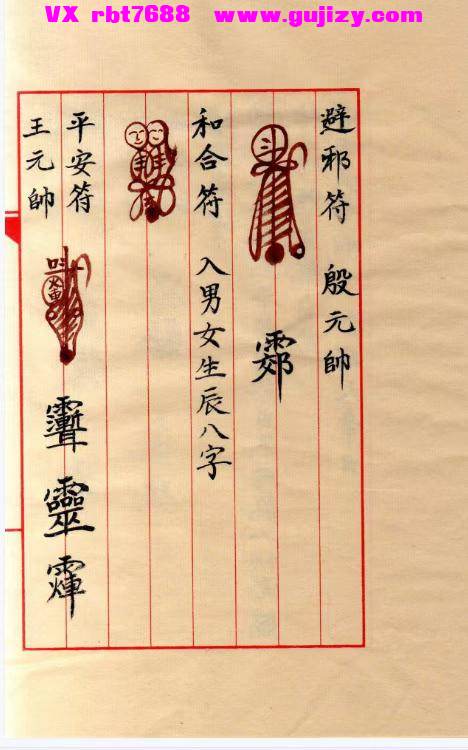 VX rbt7688 www.gujizy.com
避邪符 殷元帥
和合符 入男女生辰八字
平安符
王元帥
靈